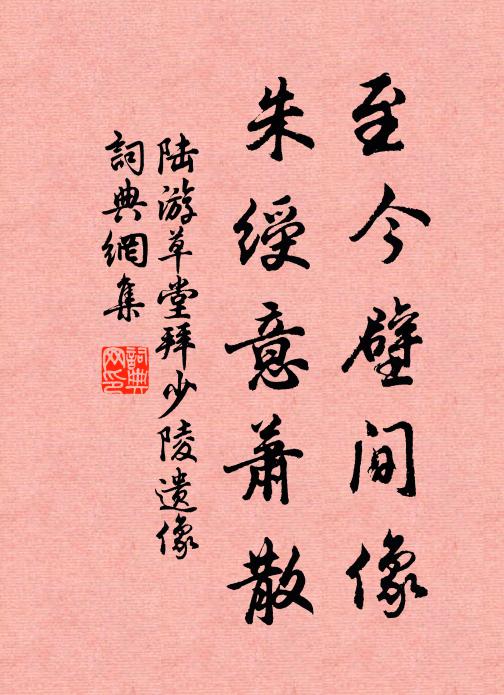 至今壁间像
朱绶意萧散
陆游草堂拜少陵遗像
詞典網集
詞典网印